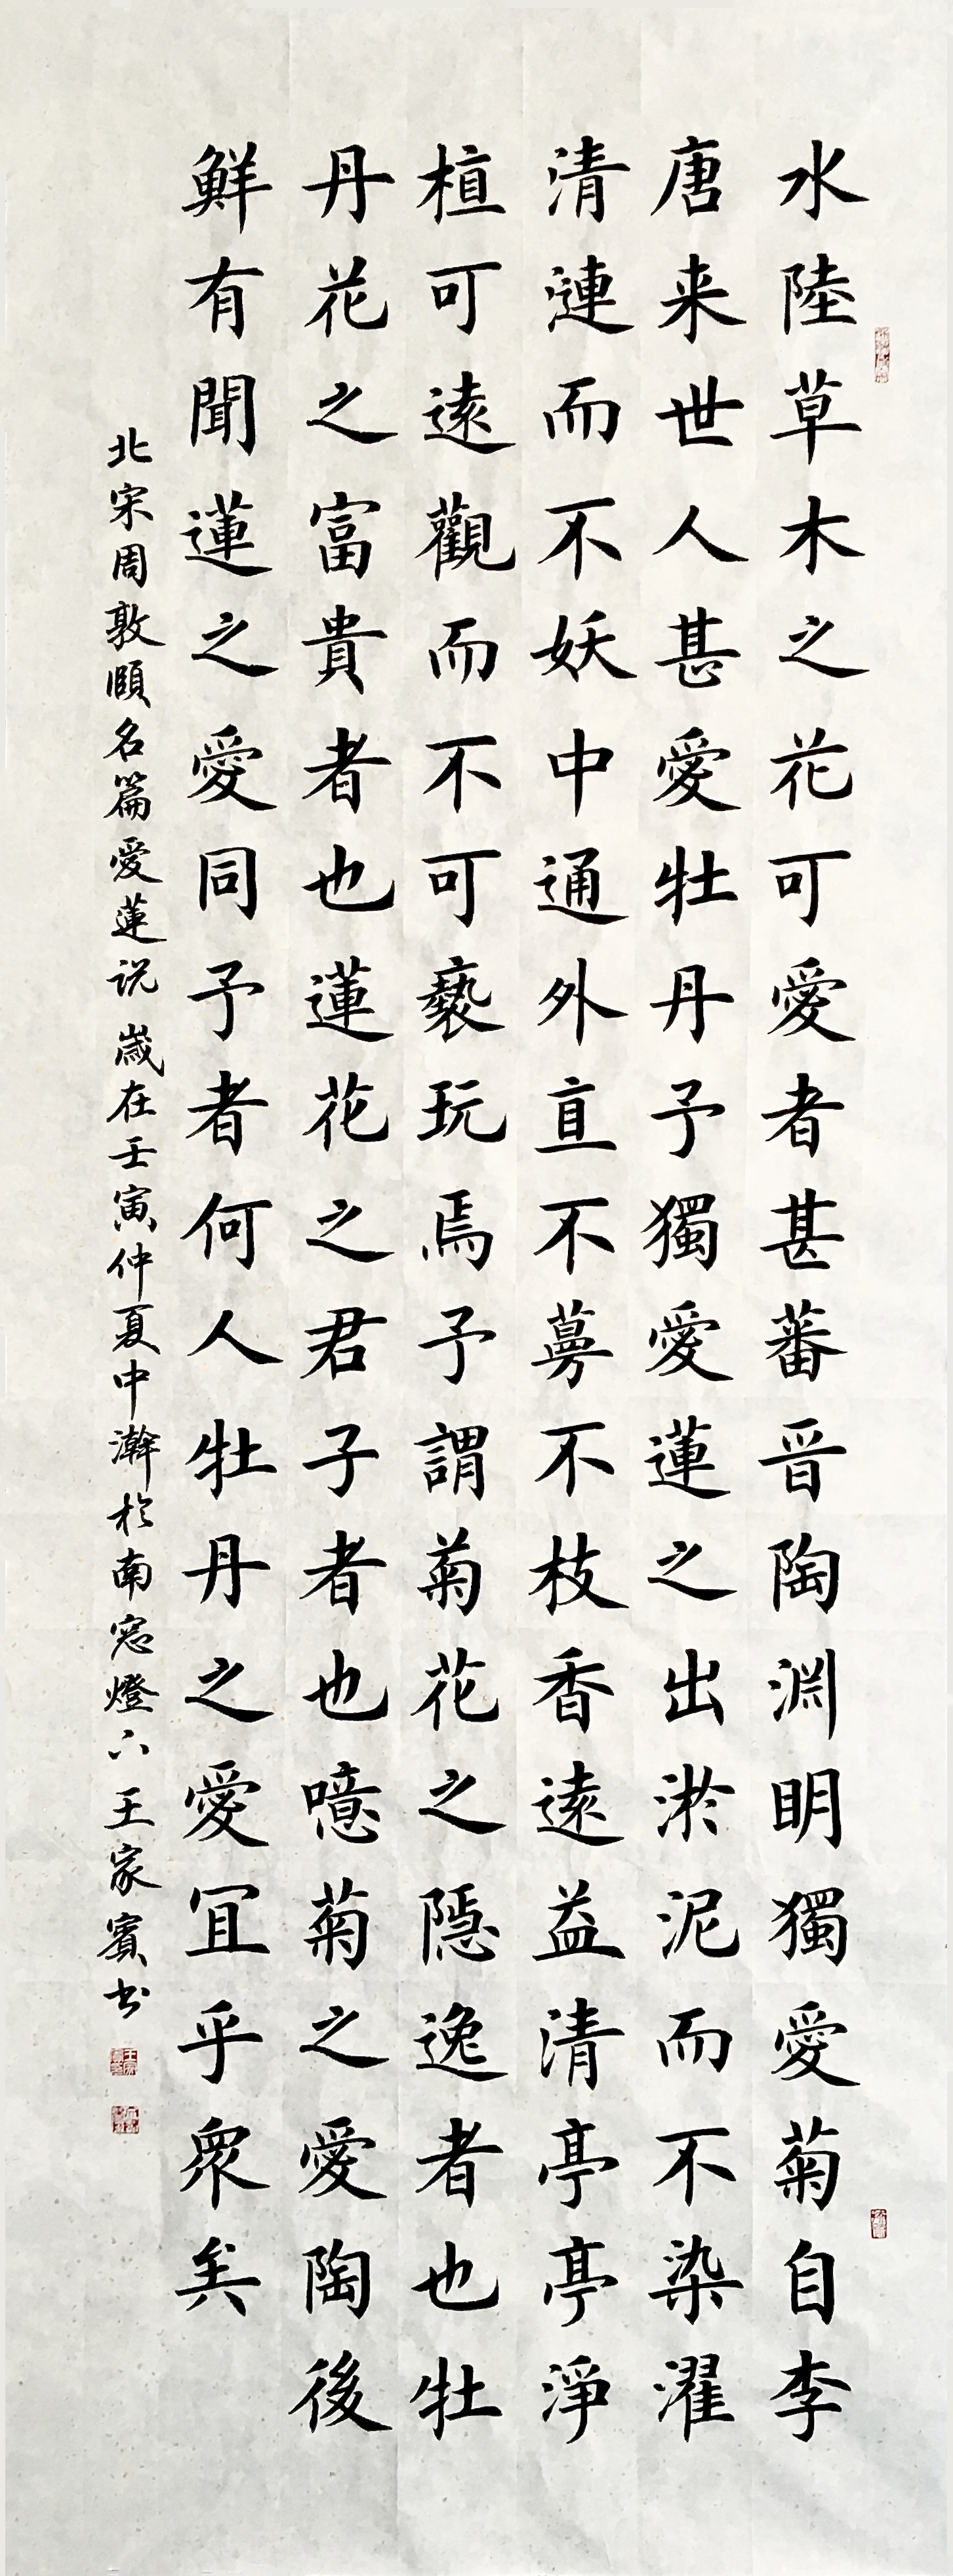 水陸草木之花可愛者甚蕃晋陶淵明獨愛菊自李
唐来世人甚愛牡丹予獨愛蓮之出淤泥而不染濯
清漣而不妖中通外直不蔓不枝香遠益清亭亭淨
植可遠觀而不可褻玩焉予謂菊花之隱逸者也牡
丹花之富貴者也蓮花之君子者也噫菊之愛陶後
鮮有聞蓮之愛同予者何人牡丹之愛宜乎眾矣
北宋周敦頤名篇愛蓮说 歲在壬寅仲夏中澣於南窓燈下王家賓书